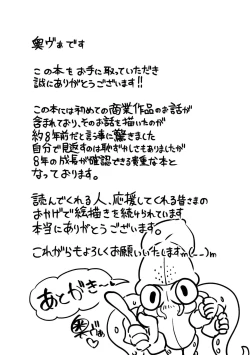 奥ヴぁです
この本をお手に取っていただき
誠にありがとうございます!!
この本には初めての商業作品のお話が
含まれており、そのお話を描いたのが
約8年前だと言う事に驚きました
自分で見返すのは恥ずかしさもありましたが
8年の成長が確認できる貴重な本と
なっております。
読んでくれる人、応援してくれる皆さまの
おかげで絵描きを続けられています
本当にありがとうございます。
これからもよろしくお願いいたしますm(_ _)m
あとがき〜〜
奥ヴぁ♡